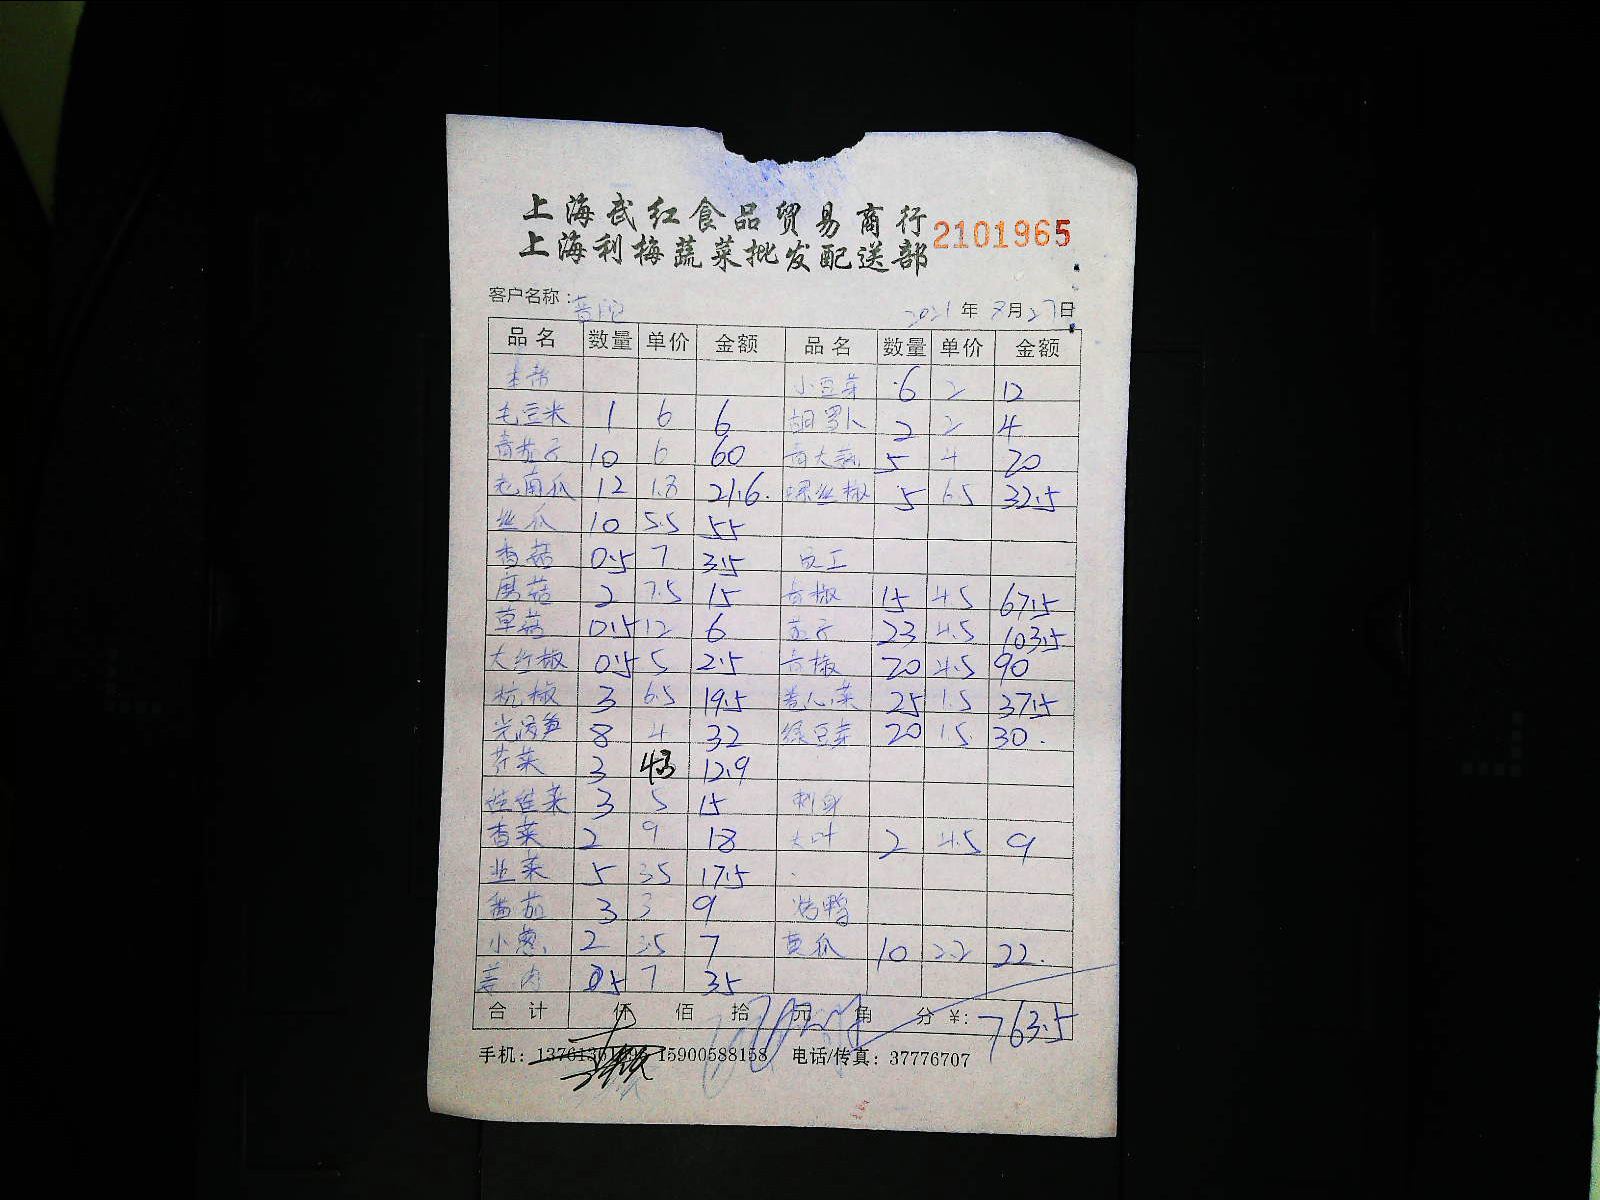 上海武红食品贸易商行
上海利梅蔬菜批发配送部 2101965
客户名称: 普陀 2021年 月27日
品名 数量 单价 金额 品名 数量 单价 金额
小豆芽 6 2 12
毛豆米 1 6 6 胡罗卜 2 2 4
青茄子 10 6 60 青大蒜 5 4 20
老南瓜 12 1.8 21.6. 螺丝椒 5 6.5 32.5
丝瓜 10 5.5 55
香菇 0.5 7 3.5 员工
磨菇 2 7.5 15 青椒 15 4.5 67.5
草菇 0.5 12 6 茄子 23 4.5 103.5
大红椒 0.5 5 2.5 青椒 20 4.5 90
杭椒 3 6.5 19.5 卷心菜 25 1.5 37.5
光莴笋 8 4 32 绿豆芽 20 1.5 30.
芥菜 3 4.3 12.9
娃娃菜 3 5 15 刺身
香菜 2 9 18 大叶 2 4.5 9
韭菜 5 3.5 17.5
番茄 3 3 9 烤鸭
小葱 2 3.5 7 黄瓜 10 2.2 22.
姜肉 0.5 7 3.5
合计 仟 佰 拾 元 角 分 ¥: 763.5
手机: 15900588158 电话/传真: 37776707